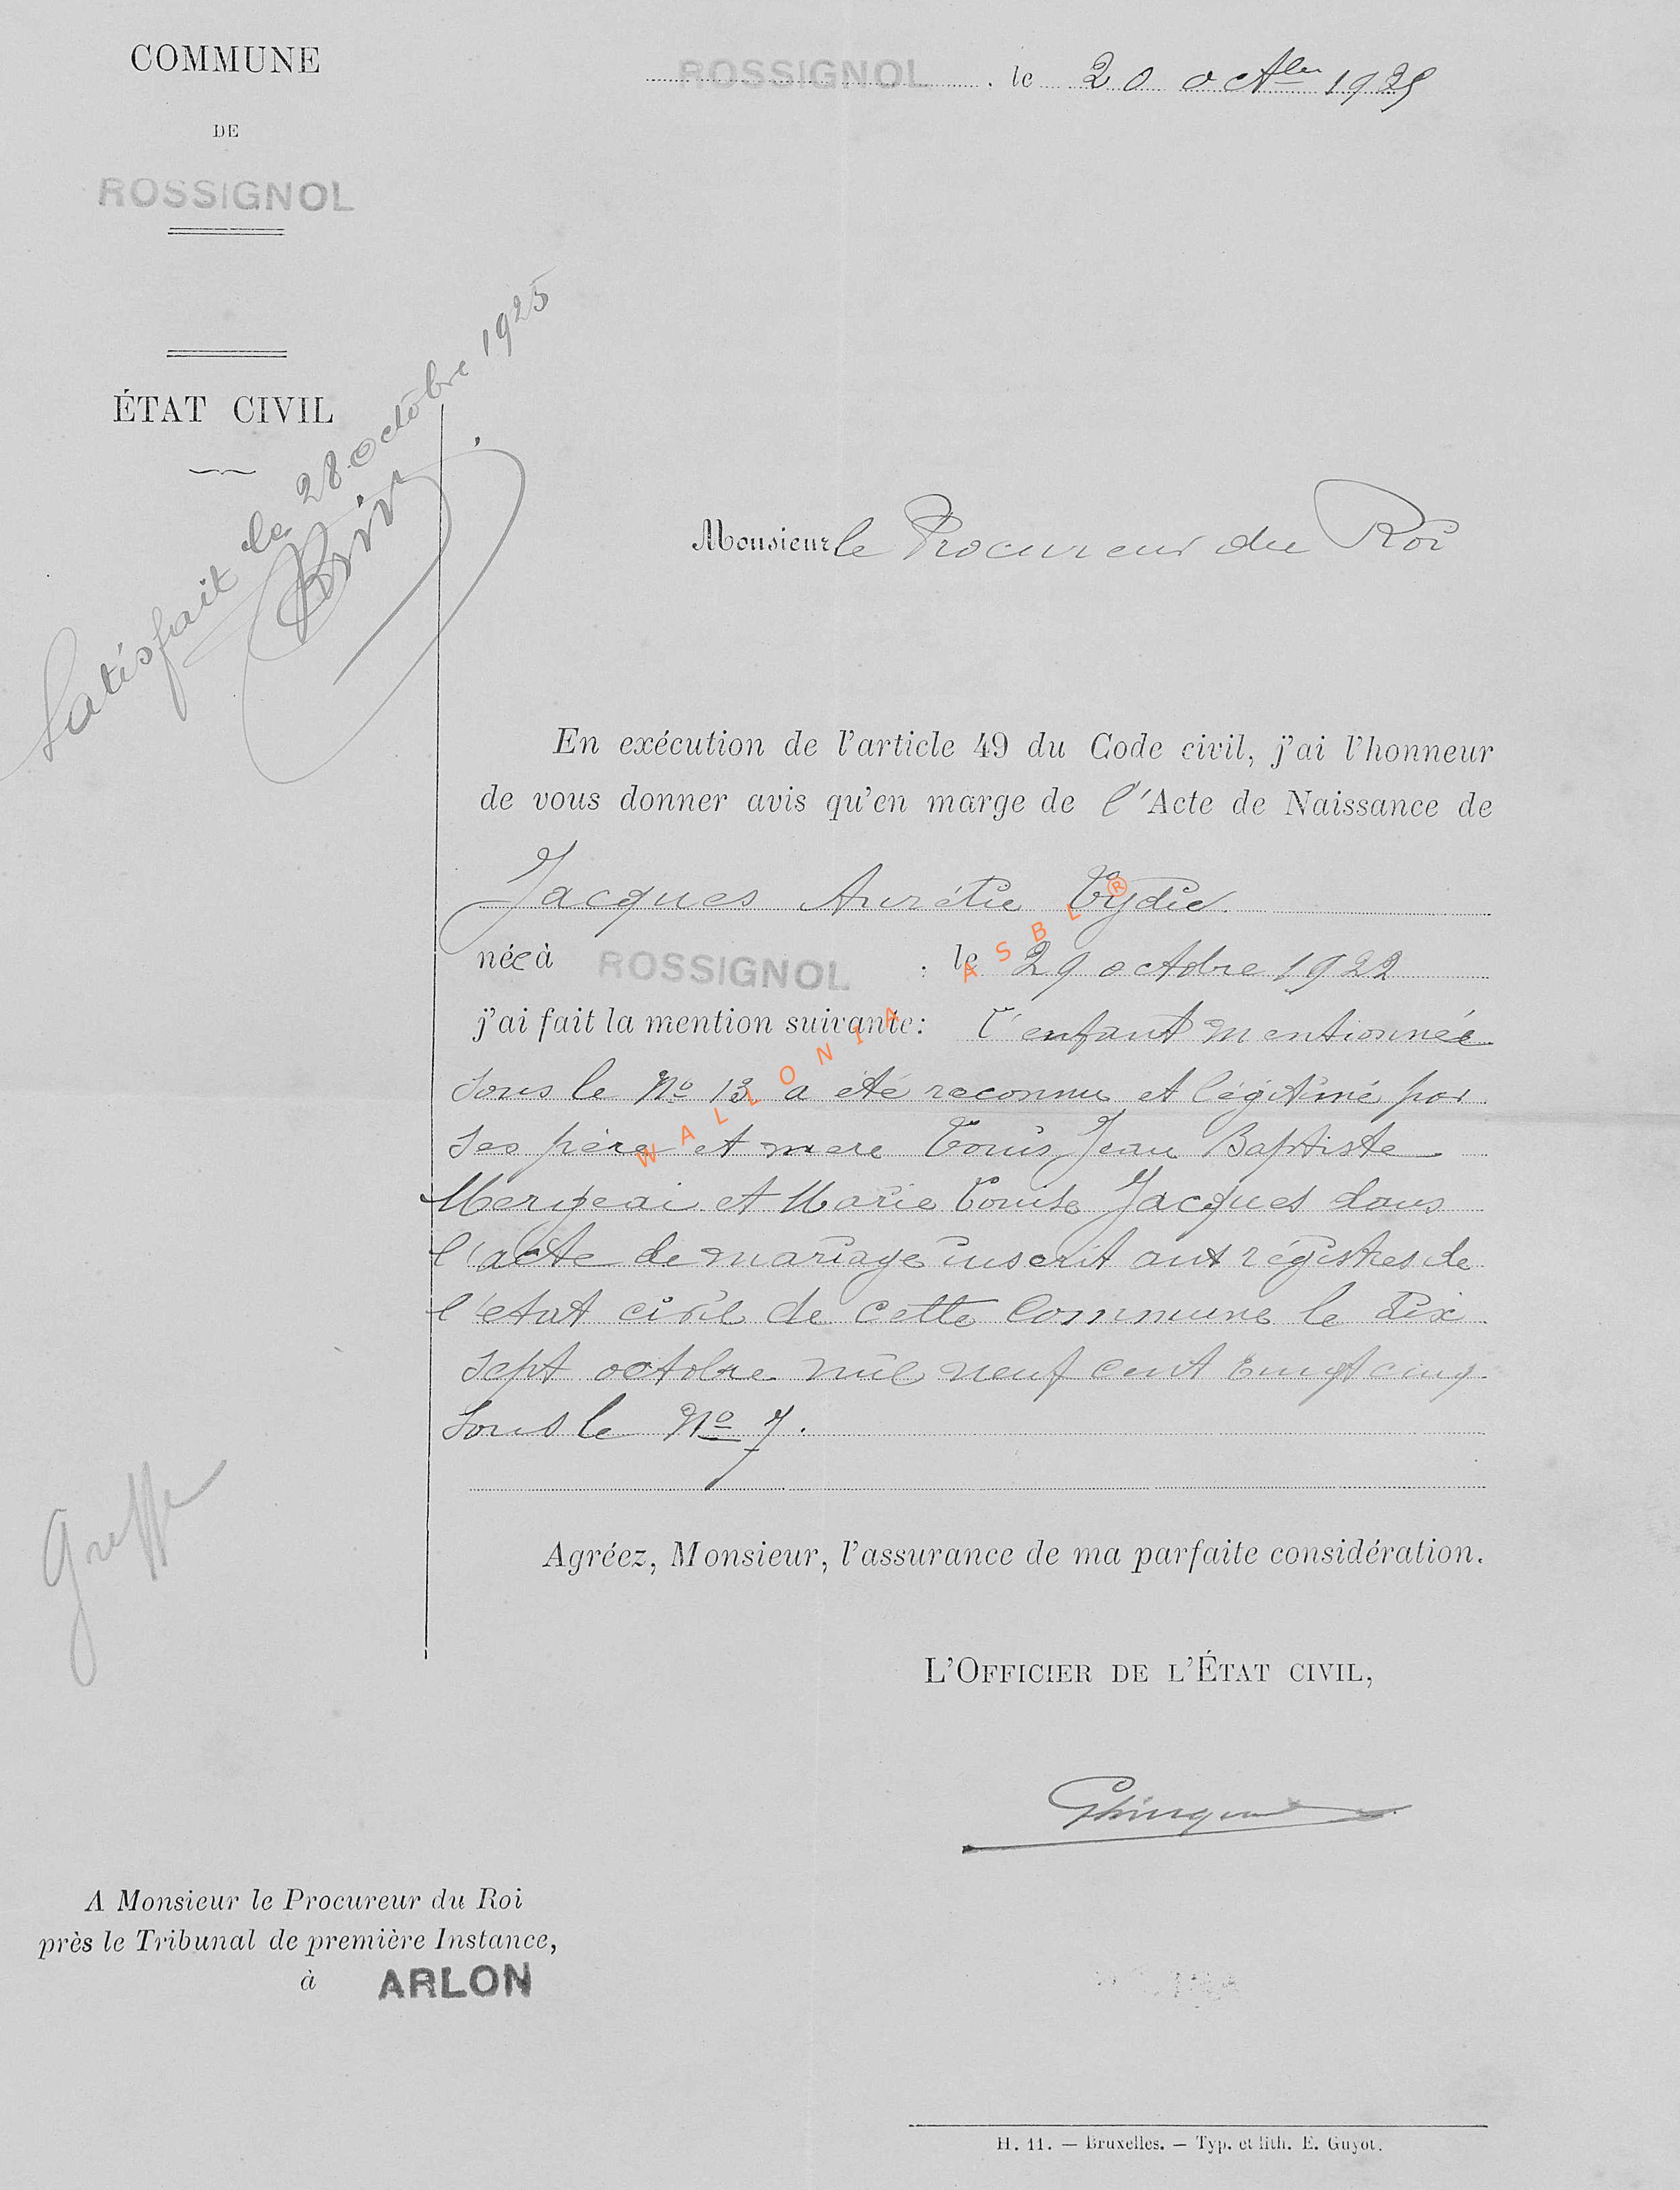 COMMUNE
DE
ROSSIGNOL
ROSSIGNOL, le 20 octbre 1925
ÉTAT CIVIL
Satisfait le 28 octobre 1925
Monsieur le Procureur du Roi
En exécution de l'article 49 du Code civil, j'ai l'honneur
de vous donner avis qu'en marge de l'Acte de Naissance de
Jacques Aurélie Lydie
née à ROSSIGNOL, le 29 octobre 1922
j'ai fait la mention suivante: L'enfant mentionnée
sous le No 13 a été reconnu et légitimé par
ses père et mere Louis Jean Baptiste
Mergeai et Marie Louise Jacques dans
l'acte de mariage inscrit aux régistres de
l'etat civil de cette Commune le dix
sept octobre mil neuf cent vingt cinq
sous le No 7.
Greffe
Agréez, Monsieur, l'assurance de ma parfaite considération.
L'OFFICIER DE L'ÉTAT CIVIL,
A Monsieur le Procureur du Roi
près le Tribunal de première Instance,
à ARLON
H. 11. — Bruxelles. — Typ. et lith. E. Guyot.
WALLONIA ASBL ®